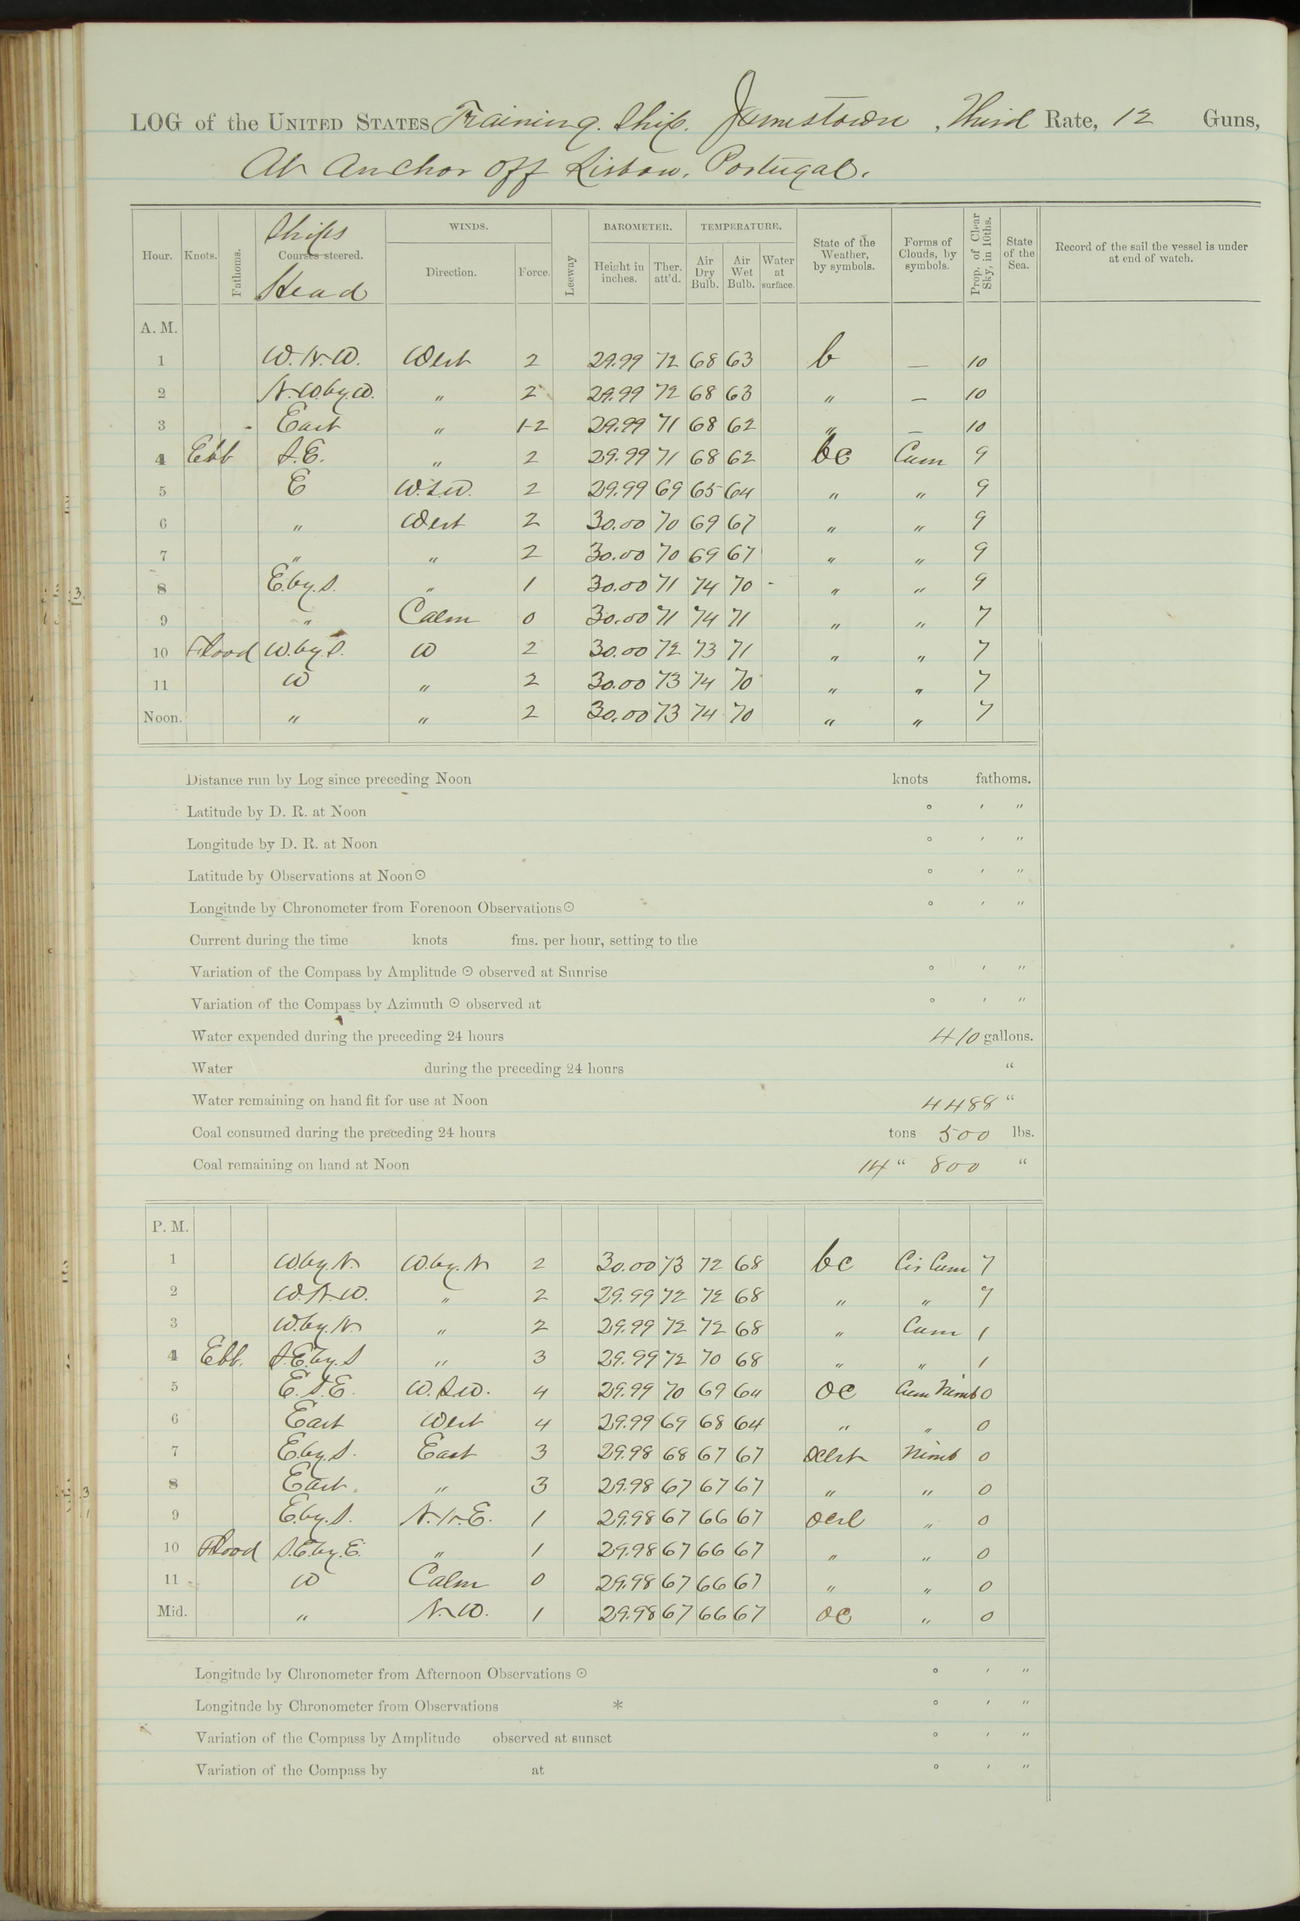 LOG of the UNITED STATES Training Ship. Jamestown, Third Rate, 12 Guns,
At Anchor off Lisbon, Portugal.
Hour. Knots. Fathoms. Ships Courses steered. Head WINDS. Direction. Force. Leeway BAROMETER. Height in inches. Ther. att'd. TEMPERATURE. Air Dry Bulb. Air Wet Bulb. Water at surface. State of the Weather, by symbols. Forms of Clouds, by symbols. Prop. of Clear Sky, in 10ths. State of the Sea. Record of the sail the vessel is under at end of watch.
A. M.
1 W.N.W. West 2 29.99 72 68 63 b — 10
2 N.W.by.W. " 2 29.99 72 68 63 " — 10
3 East " 1-2 29.99 71 68 62 " — 10
4 Ebb S.E. " 2 29.99 71 68 62 bc Cum 9
5 E W.S.W. 2 29.99 69 65 64 " " 9
6 " West 2 30.00 70 69 67 " " 9
7 " " 2 30.00 70 69 67 " " 9
8 E.by.S. " 1 30.00 71 74 70 " " 9
9 " Calm 0 30.00 71 74 71 " " 7
10 Flood W.by.S. W 2 30.00 72 73 71 " " 7
11 W " 2 30.00 73 74 70 " " 7
Noon. " " 2 30.00 73 74 70 " " 7
Distance run by Log since preceding Noon knots fathoms.
Latitude by D. R. at Noon ° ′ ″
Longitude by D. R. at Noon ° ′ ″
Latitude by Observations at Noon ☉ ° ′ ″
Longitude by Chronometer from Forenoon Observations ☉ ° ′ ″
Current during the time knots fms. per hour, setting to the
Variation of the Compass by Amplitude ☉ observed at Sunrise ° ′ ″
Variation of the Compass by Azimuth ☉ observed at ° ′ ″
Water expended during the preceding 24 hours 410 gallons.
Water during the preceding 24 hours "
Water remaining on hand fit for use at Noon 4488 "
Coal consumed during the preceding 24 hours tons 500 lbs.
Coal remaining on hand at Noon 14 " 800 "
P. M.
1 W.by.N. W.by.N 2 30.00 73 72 68 bc Cir Cum 7
2 W.N.W. " 2 29.99 72 72 68 " " 7
3 W.by.N. " 2 29.99 72 72 68 " Cum 1
4 Ebb. S.E.by.S " 3 29.99 72 70 68 " " 1
5 E.S.E. W.S.W. 4 29.99 70 69 64 oc Cum Nimb 0
6 East West 4 29.99 69 68 64 " " 0
7 E.by.S. East 3 29.98 68 67 67 Nimb 0
8 East. " 3 29.98 67 67 67 " " 0
9 E.by.S. N.N.E. 1 29.98 67 66 67 " 0
10 Flood S.E.by.E. " 1 29.98 67 66 67 " " 0
11 W Calm 0 29.98 67 66 67 " " 0
Mid. " N.W. 1 29.98 67 66 67 oc " 0
Longitude by Chronometer from Afternoon Observations ☉ ° ′ ″
Longitude by Chronometer from Observations * ° ′ ″
Variation of the Compass by Amplitude observed at sunset ° ′ ″
Variation of the Compass by at ° ′ ″